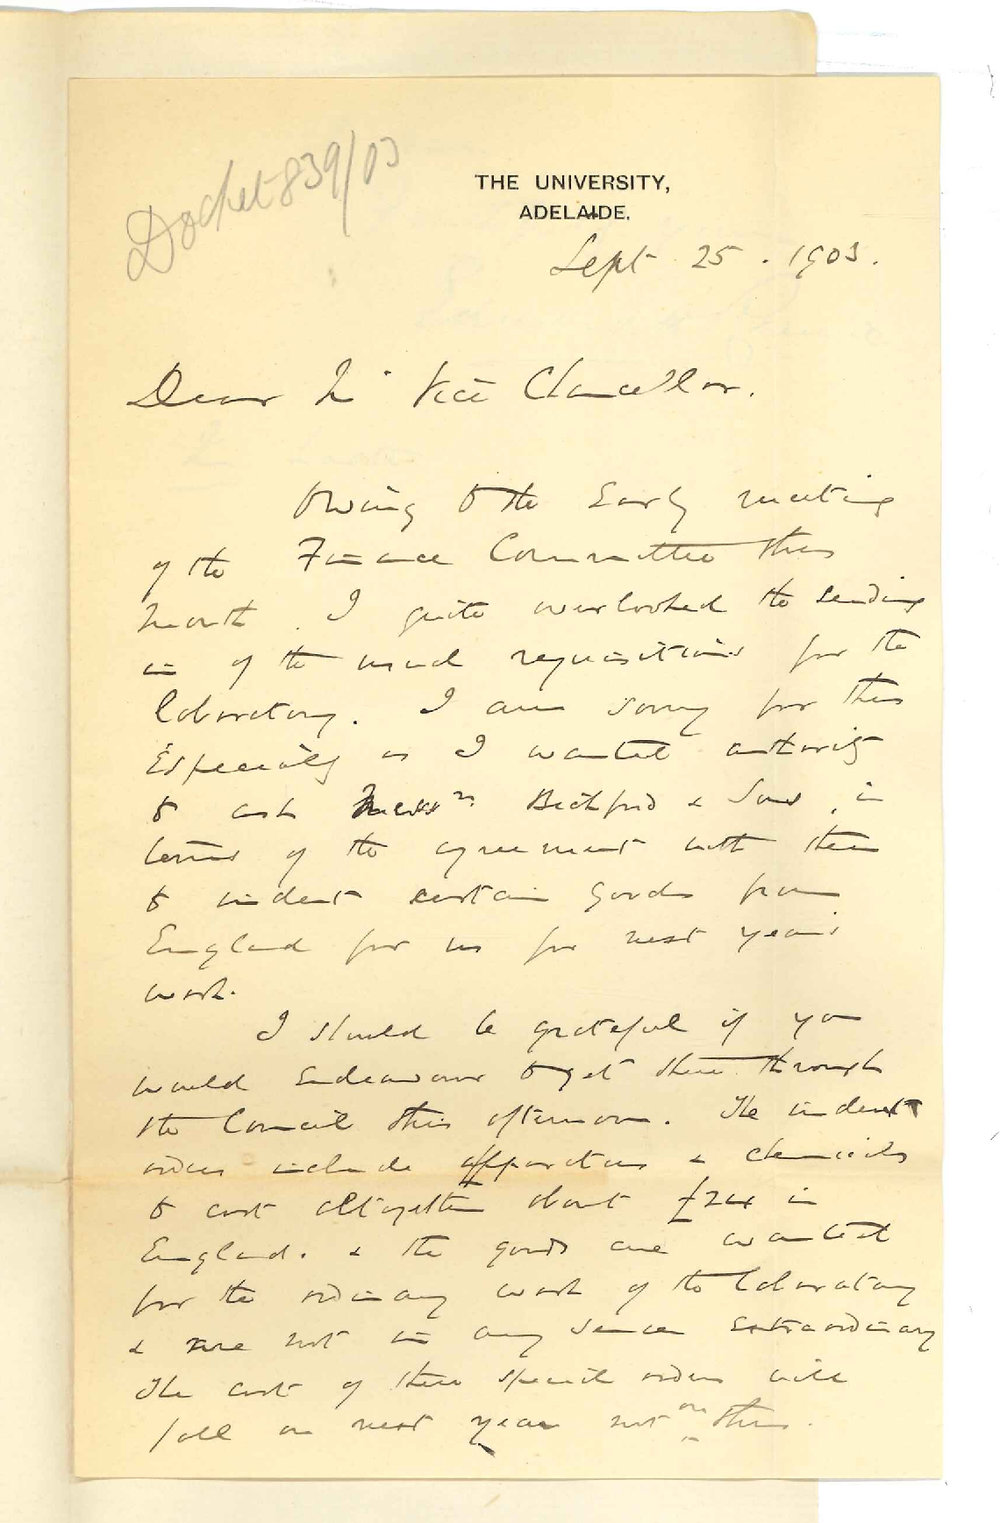 Docket 839/03
THE UNIVERSITY,
ADELAIDE.
Sept 25. 1903.
Dear Mr Vice Chancellor.
Owing to the early meeting
of the Finance Committee this
month. I quite overlooked the sending
in of the usual requisitions for the
laboratory. I am sorry for this
especially as I wanted authority
to ask Messrs Bickford & Sons, in
terms of the agreement with them
to indent certain goods from
England for us for next year's
work.
I should be grateful if you
would endeavour to get these through
the Council this afternoon. The indent
orders include apparatus & chemicals
to cost altogether about £24 in
England. & the goods are wanted
for the ordinary work of the laboratory
& are not in any sense extraordinary
The cost of these special orders will
fall on next year not on this.